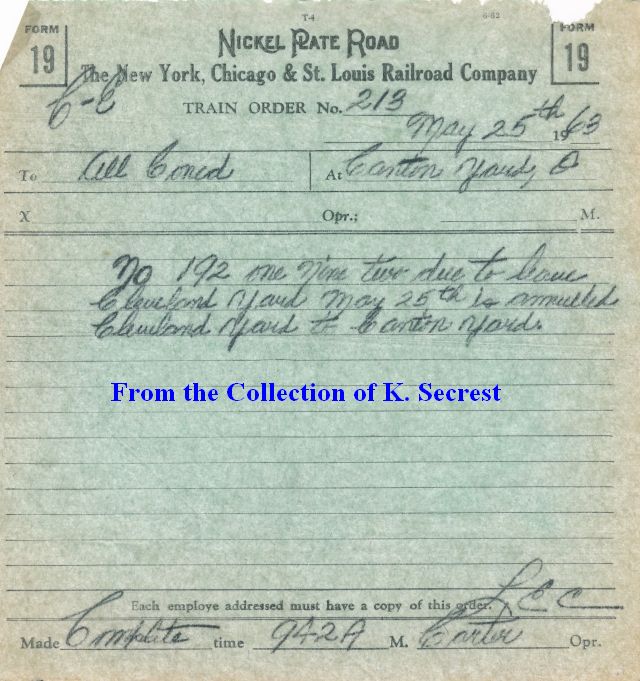 T-4 6-62
FORM 19 NICKEL PLATE ROAD FORM 19
The New York, Chicago & St. Louis Railroad Company
C-E TRAIN ORDER No. 213
May 25th 1963
To All Concd At Canton Yard, O
X Opr.; M.
No 192 one nine two due to leave
Cleveland Yard May 25th is annulled
Cleveland Yard to Canton Yard.
From the Collection of K. Secrest
Each employe addressed must have a copy of this order. LEC
Made Complete time 942A M. Carter Opr.